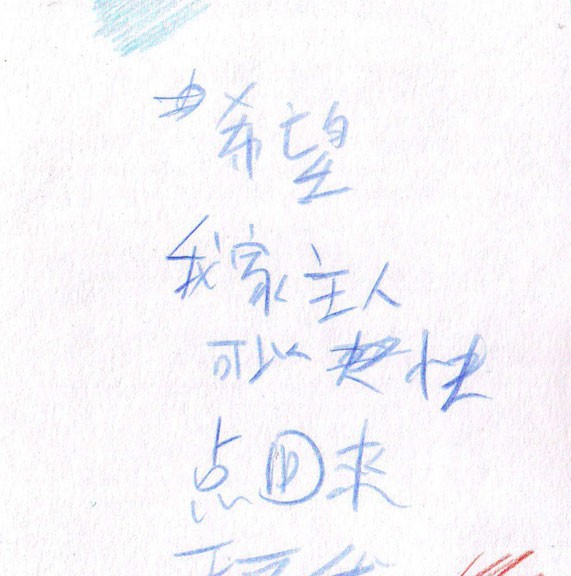 希望
我家主人
可以快
点回来